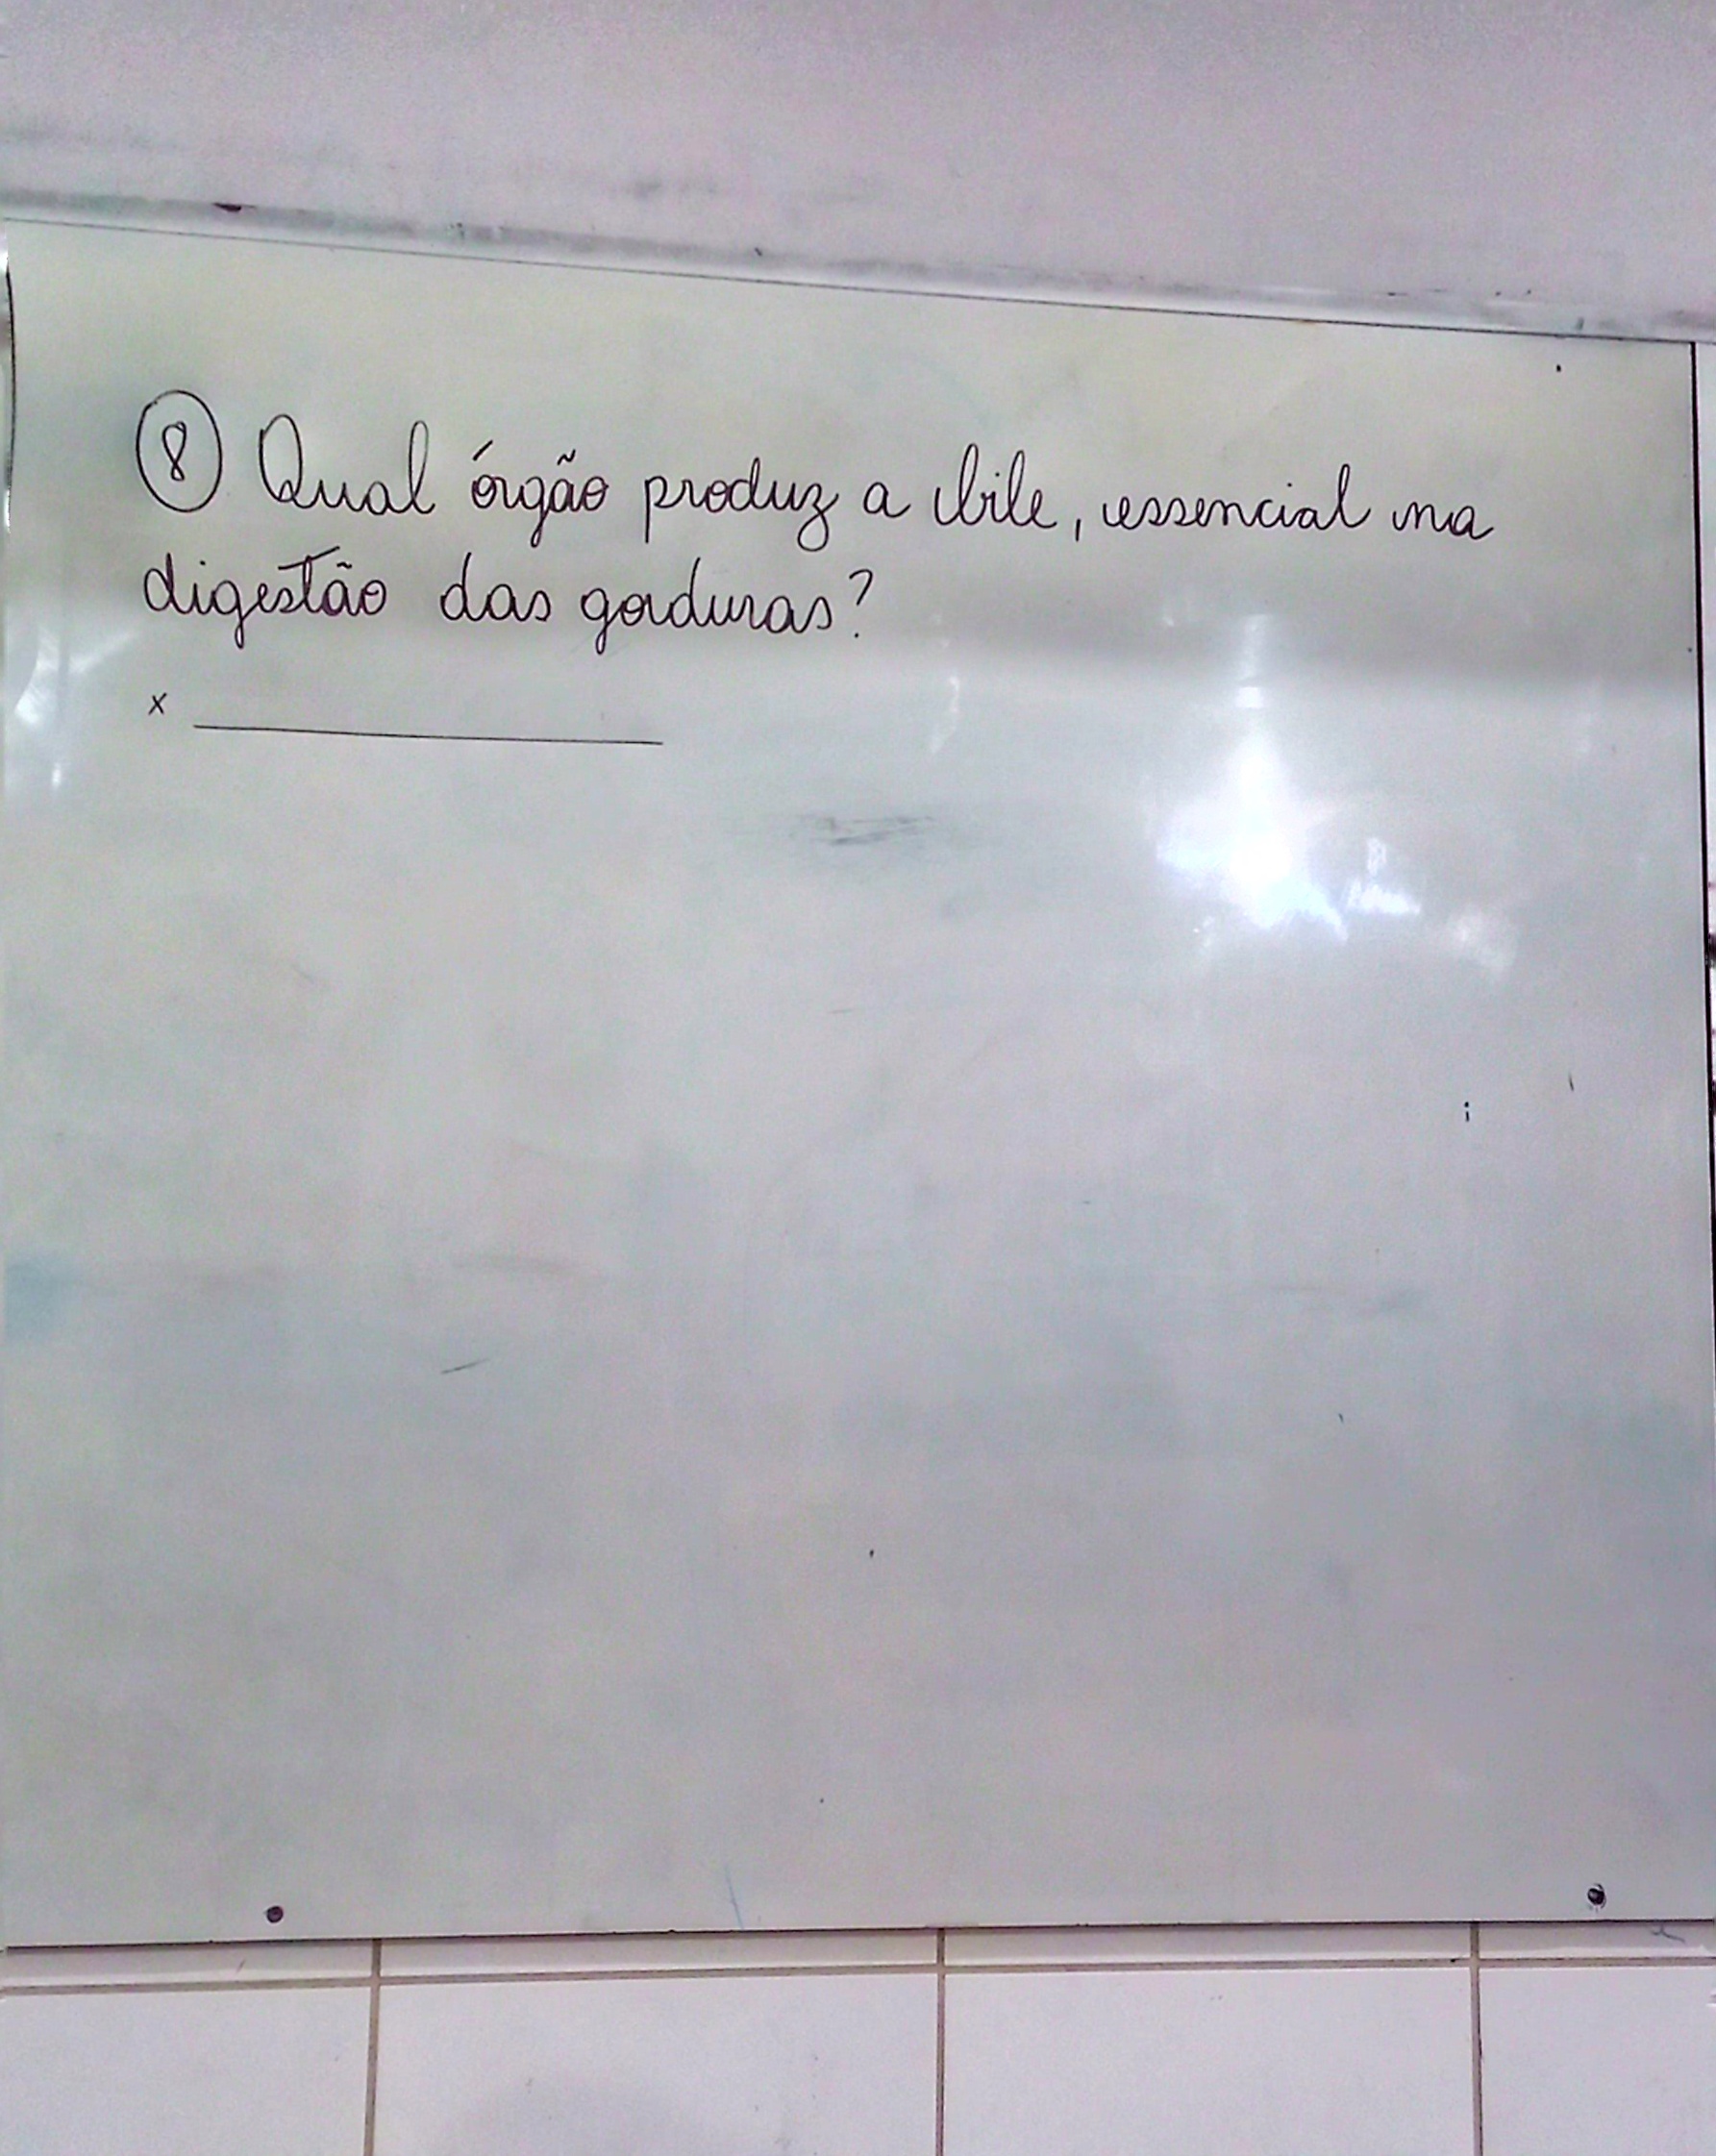 ⑧ Qual órgão produz a bile, essencial na
digestão das gorduras?
x ____________